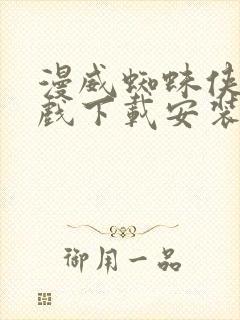 漫威蜘蛛侠
戏下载安装
御用一品